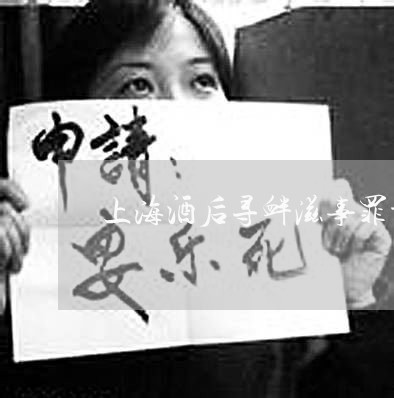 申請：
上海酒后寻衅滋事罪
安乐死